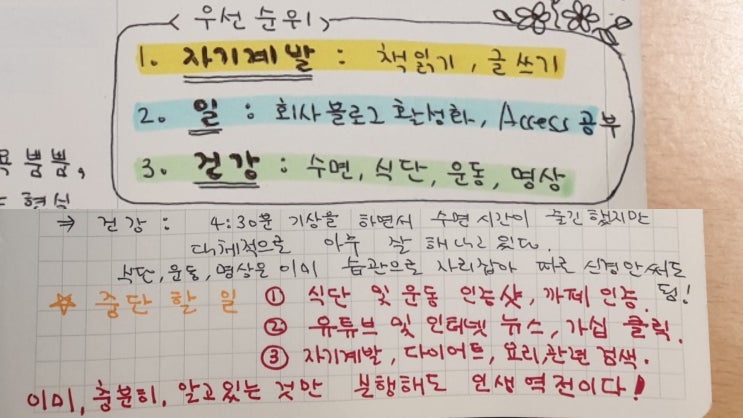 < 우선순위 >
1. 자기계발 : 책읽기, 글쓰기
2. 일 : 회사 블로그 활성화, Access 공부
3. 건강 : 수면, 식단, 운동, 명상
뿜뿜,
⇒ 건강 : 4:30분 기상을 하면서 수면시간이 줄긴 했지만
대체적으로 아주 잘 해내고 있다.
식단, 운동, 명상은 이미 습관으로 자리잡아 따로 신경안써도 됨!
☆ 중단할 일 ① 식단 및 운동 인증샷, 카페 인증.
② 유튜브 및 인터넷 뉴스, 가십 클릭.
③ 자기계발, 다이어트, 요리,관련 검색.
이미, 충분히, 알고있는 것만 실행해도 인생역전이다!